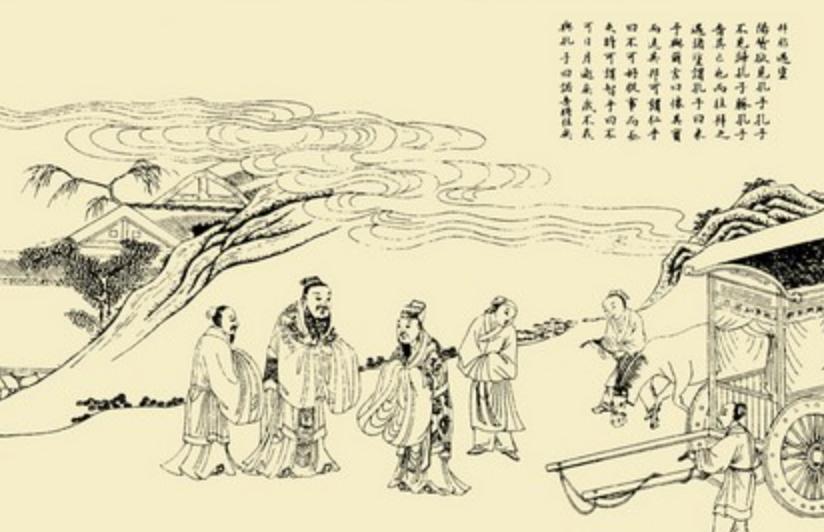 拜胙遇塗
陽貨欲見孔子孔子
不見歸孔子豚孔子
旹其亡也而往拜之
遇諸塗謂孔子曰來
予與爾言曰懷其寶
而迷其邦可謂仁乎
曰不可好從事而亟
失時可謂智乎曰不
可日月逝矣歲不我
與孔子曰諾吾將仕矣